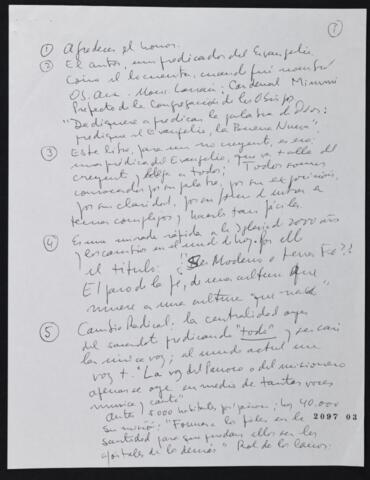 1
① Agradecer el honor.
② El autor, un predicador del Evangelio
Como él lo cuenta, cuando fue nombrado
Ob. Aux. Marc Larraín; Cardenal Mimmi
Prefecto de la Congregación de los Obispos
"Dedíquese a predicar la palabra de Dios;
predique el Evangelio, la Buena Nueva".
③ Este libro, para un no creyente, es eso:
una prédica del Evangelio, que va + allá del
creyente y llega a todos; Todos somos
convocados por su palabra, por su exposición,
por su claridad, por su poder de entrar a
temas complejos y hacerlos tan fáciles.
④ Es una mirada rápida a la Iglesia de 2000 años
y los cambios en el mundo de hoy, por ello
el título: "¿Ser Moderno o tener Fe?!
El paso de la fe, de una cultura que
muere a una cultura "que nace"
⑤ Cambio Radical: la centralidad ayer
del sacerdote predicando "todo" y era casi
la única voz; al mundo actual una
voz +. "La voz del Párroco o del misionero
apenas se oye en medio de tantas voces
música y canto"
Antes 5000 habitantes por párroco; hoy 40.000
Su misión: "Formar a los fieles en la
2097 03
santidad para que puedan ellos ser los
apóstoles de los demás" Rol de los laicos.